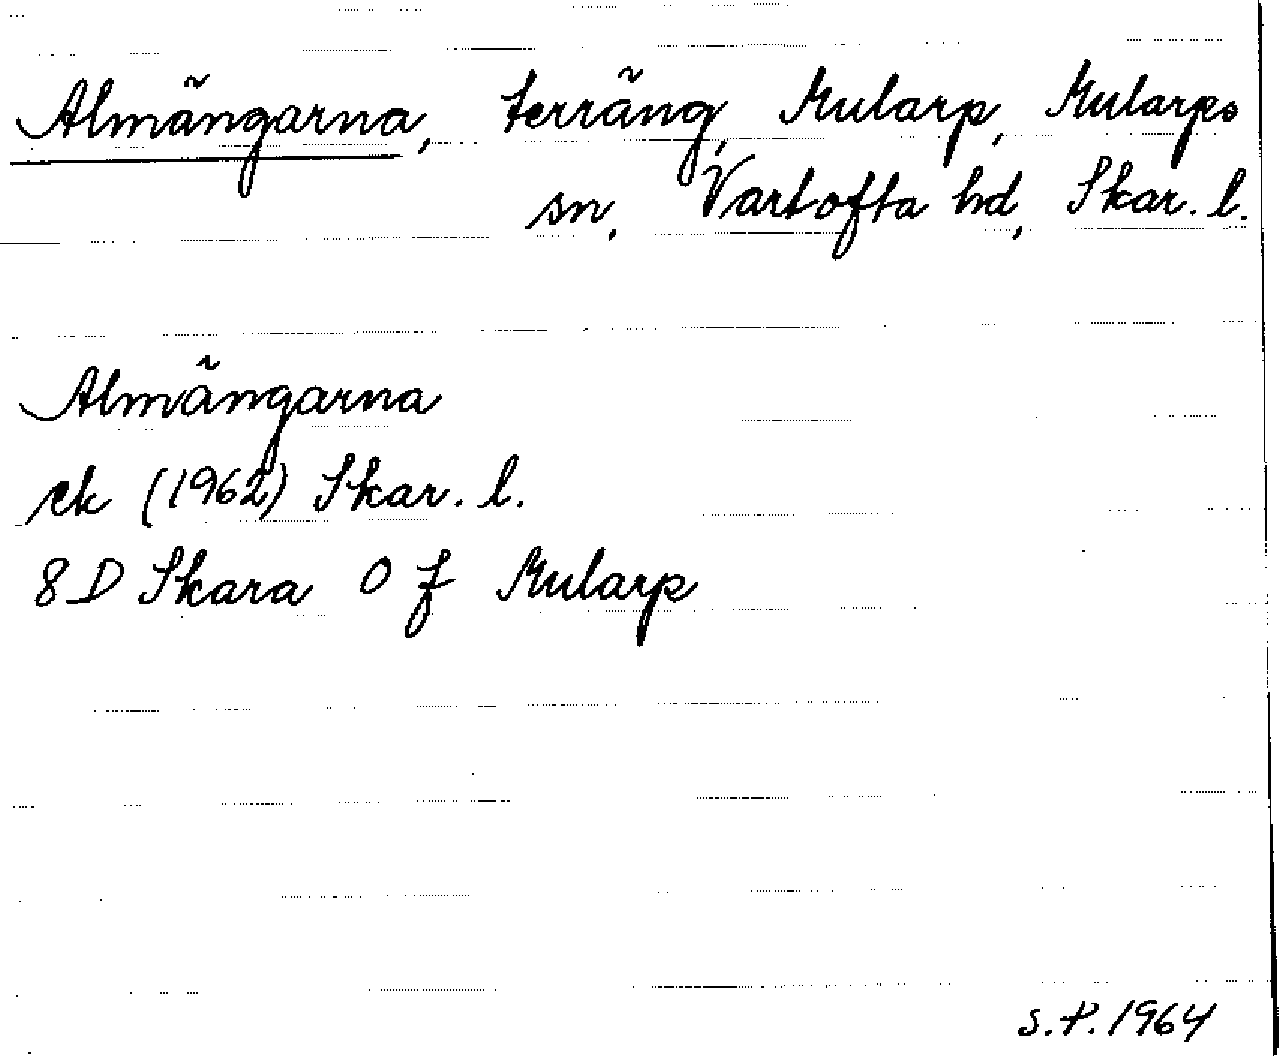 Almängarna, terräng, Mularp, Mularps
sn, Vartofta hd, Skar. l.
Almängarna
ek (1962) Skar. l.
8 D Skara O f Mularp
S.P. 1964